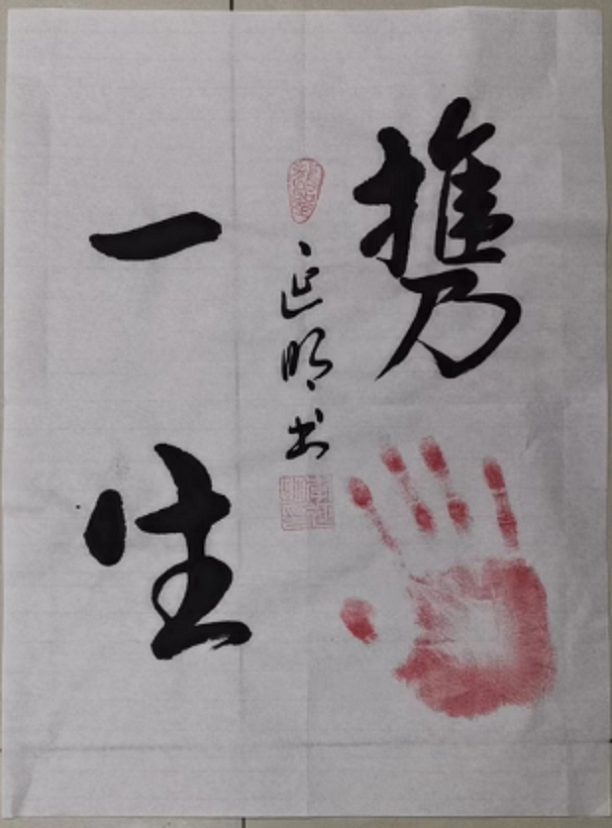 携
一生
延明书